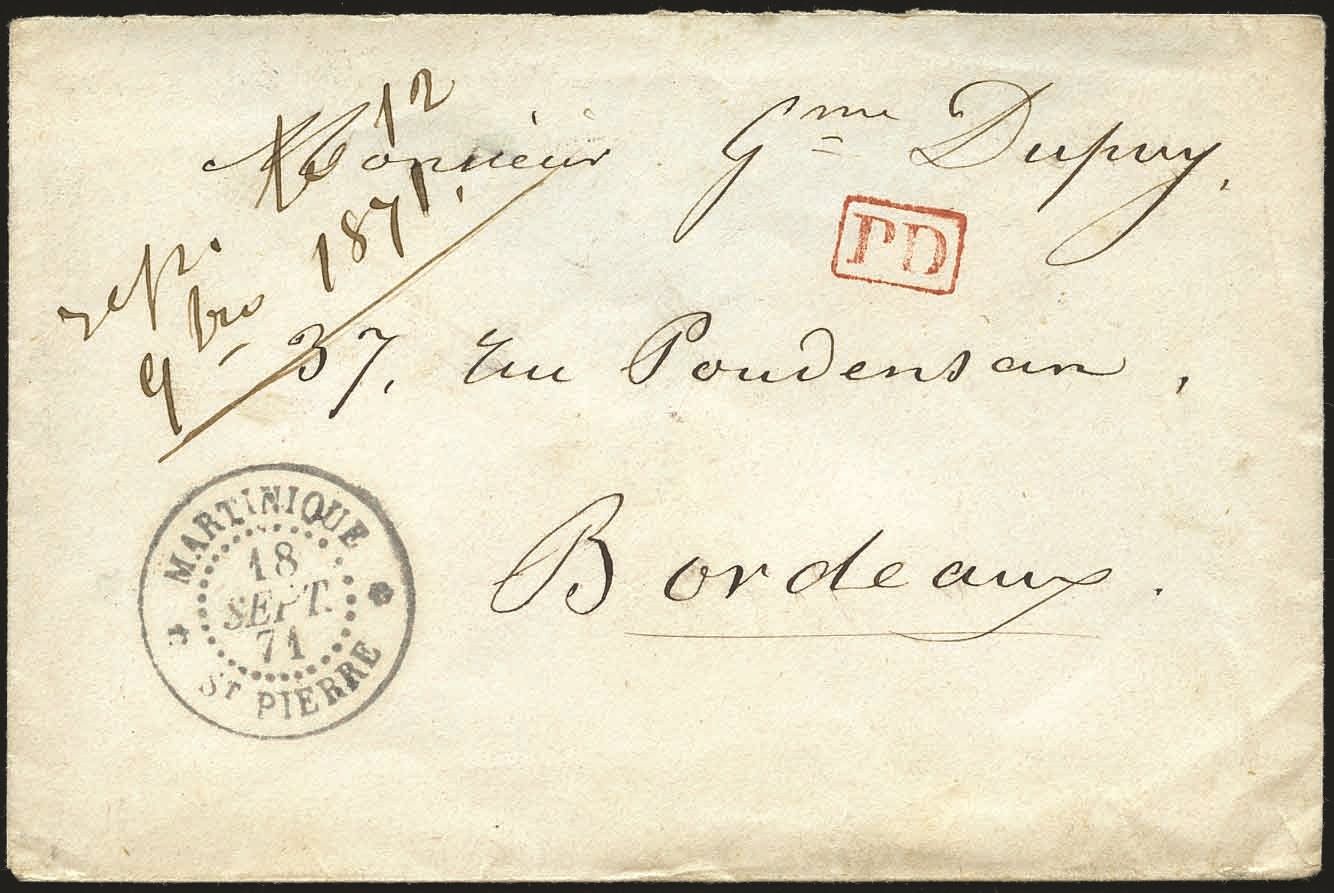 Monsieur Gme Dupuy,
PD
37, rue Poudensan,
Bordeaux.
rep. le 12
9bre 1871.
MARTINIQUE
18
SEPT.
71
ST PIERRE